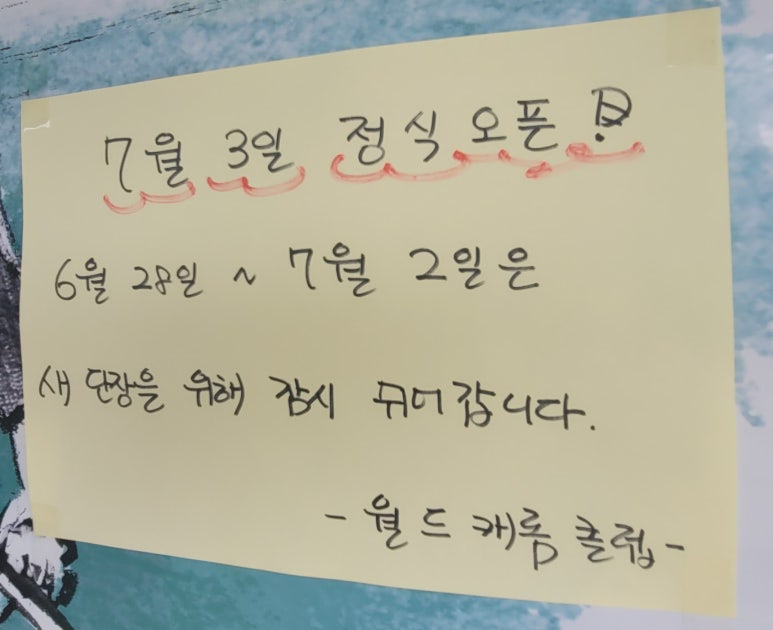 7월 3일 정식 오픈!
6월 28일 ~ 7월 2일은
새 단장을 위해 잠시 쉬어갑니다.
- 월드 캐롬 클럽 -